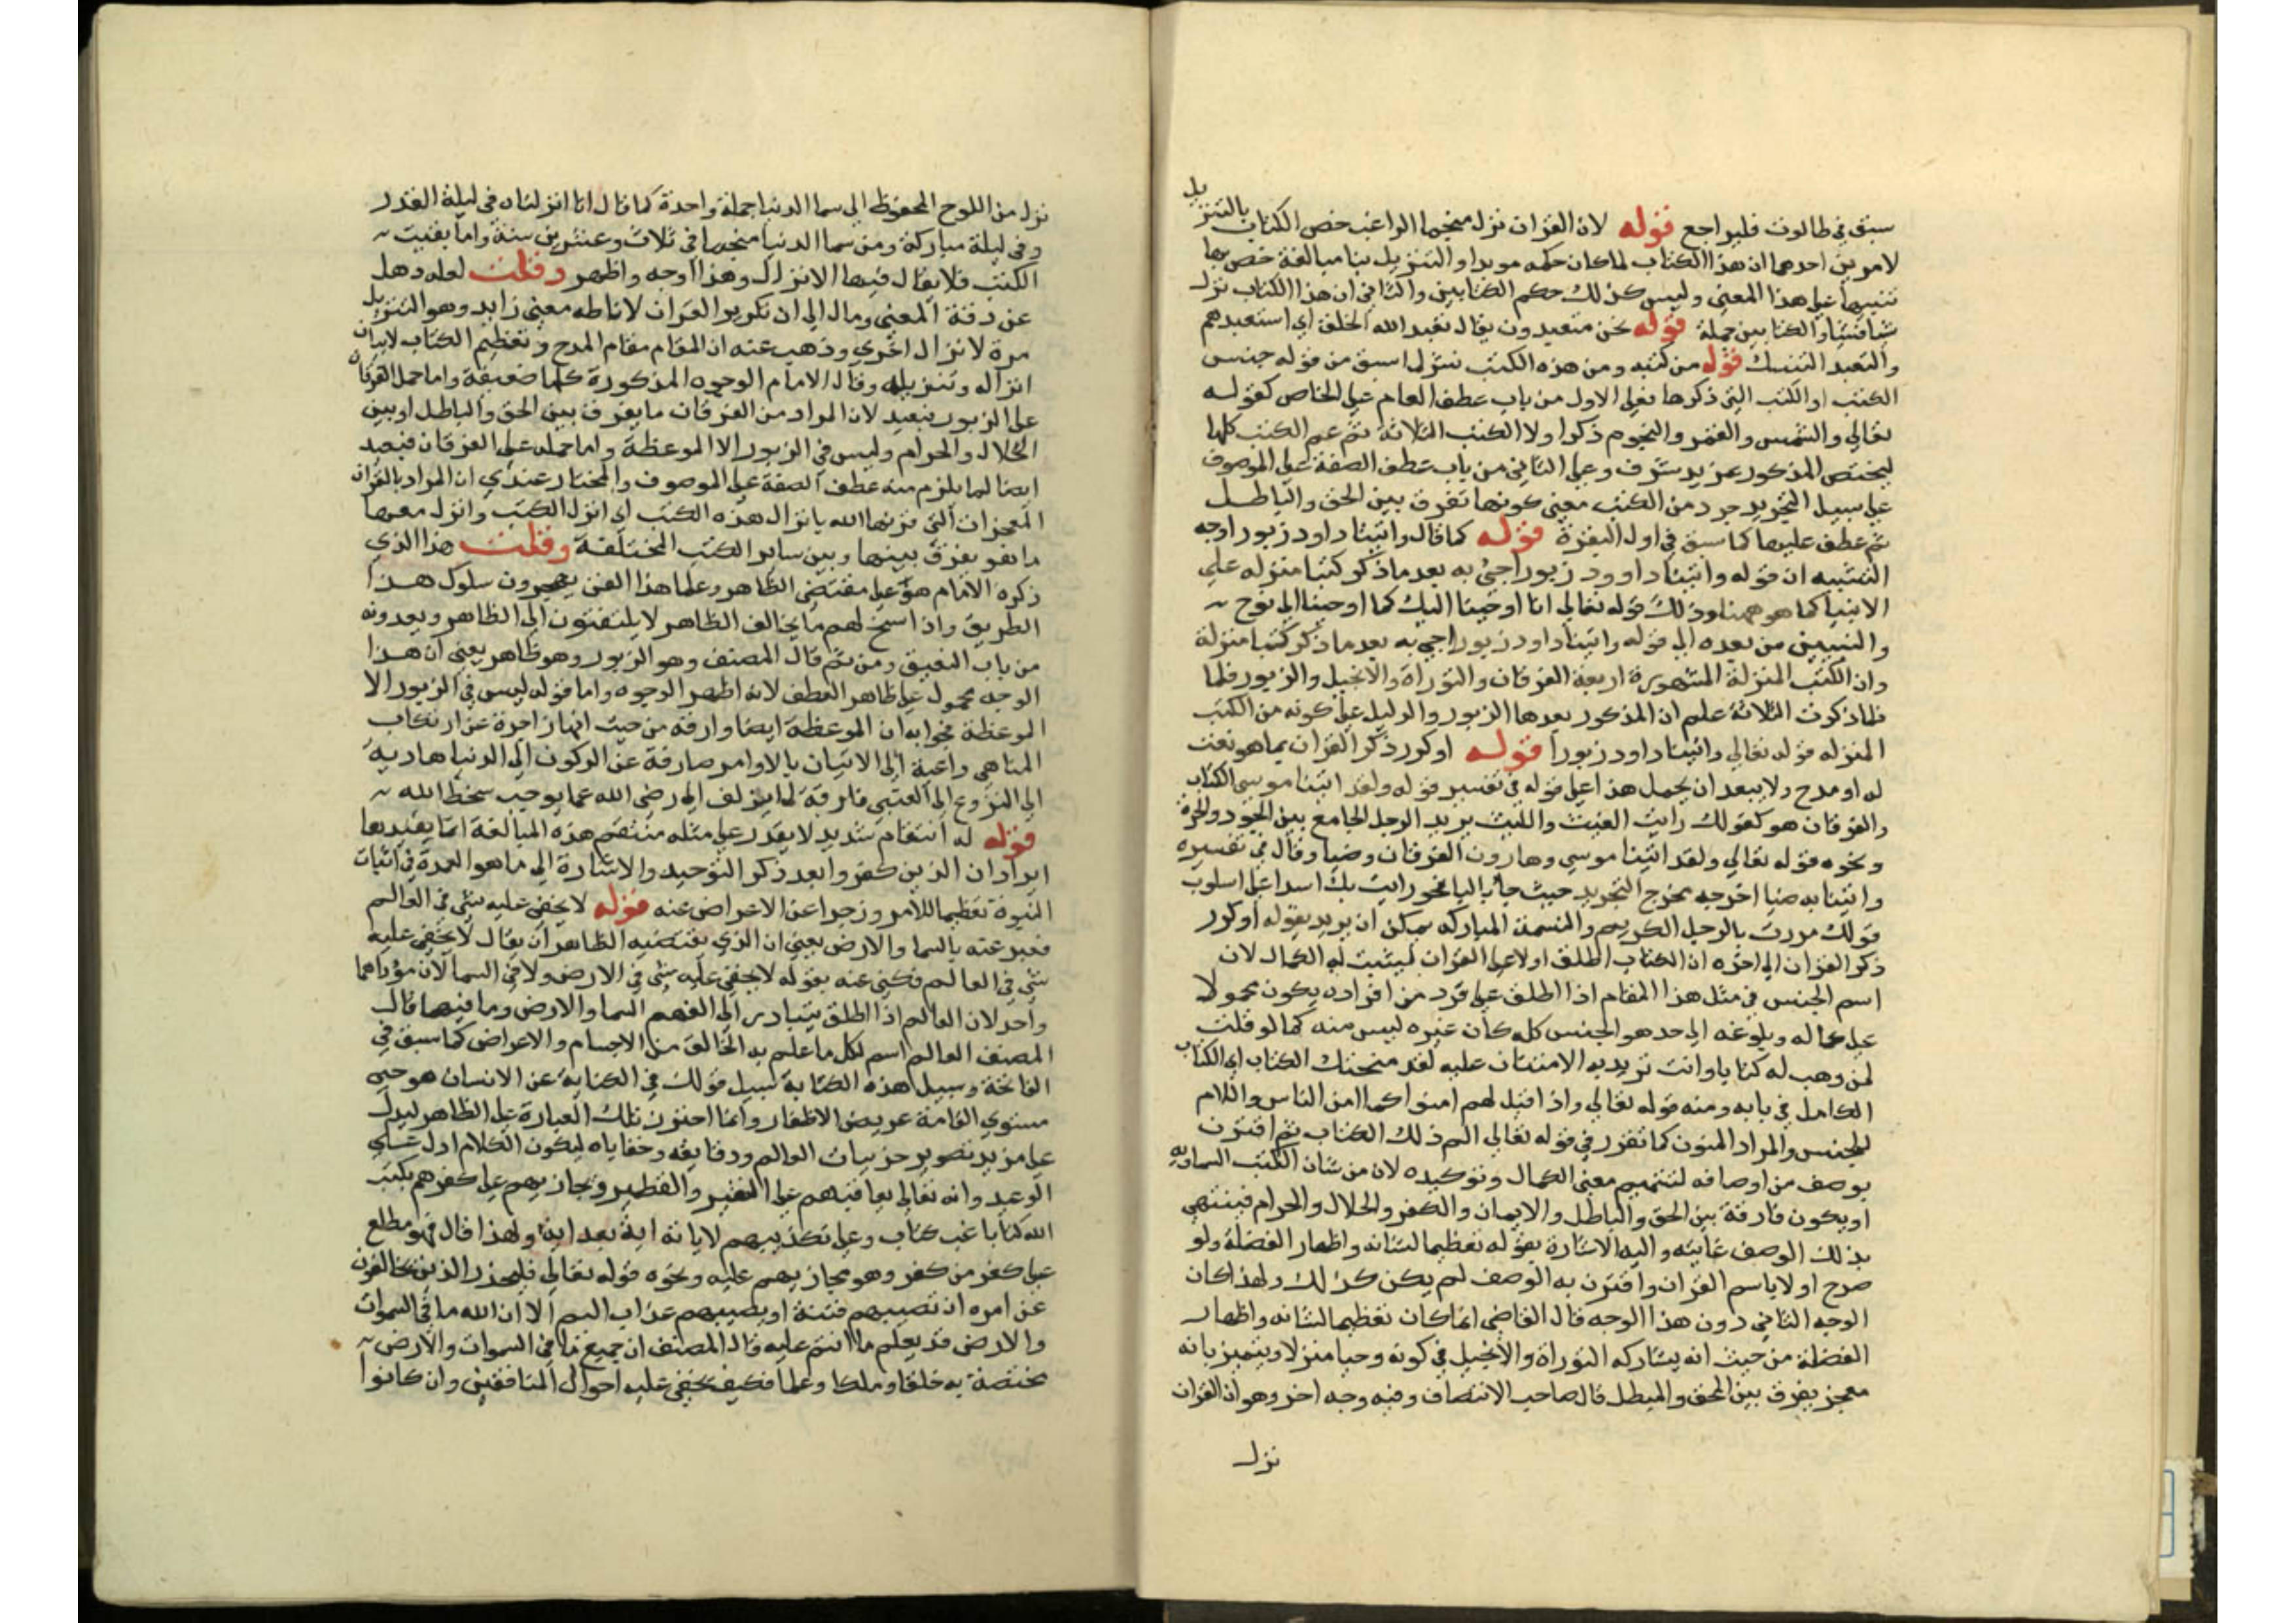 سبق في طالوت فليراجع قوله لان القران نزل منجما الراغب خص الكتاب بالتنزيل
لامرين احدهما ان هذا الكتاب لما كان حكمه موبدا والتنزيل بنا مبالغة خص بها
تنبيها علي هذا المعني وليس كذلك حكم الكتابين والثاني ان هذا الكتاب نزل
شيا فشيا والكتابين جملة قوله نحن متعبدون يقال تعبد الله الخلق اي استعبدهم
والتعبد التنسك قوله من كتبه ومن هذه الكتب لما سبق من قوله جنس
الكتب او الكتب التي ذكرها فعلي الاول من باب عطف العام علي الخاص كقوله
تعالي والشمس والقمر والنجوم ذكر اولا الكتب الثلاثة ثم عم الكتب كلها
ليختص المذكور بمزيد شرف وعلي الثاني من باب عطف الصفة علي الموصوف
علي سبيل التجريد جرد من الكتب معني كونها تفرق بين الحق والباطل
ثم عطف عليها كما سبق في اول البقرة قوله كما قال واتينا داود زبورا وجه
التشبيه ان قوله واتينا داوود زبورا جيء به بعد ما ذكر كتبا منزله علي
الانبيا كما هو ههنا وذلك قوله تعالي انا اوحينا اليك كما اوحينا الي نوح
والنبيين من بعده الي قوله واتينا داود زبورا جيء به بعد ما ذكر كتبا منزلة
وان الكتب المنزلة المشهورة اربعة الفرقان والتوراة والانجيل والزبور فلما
فلما ذكرت الثلاثة علم ان المذكور بعدها الزبور والدليل علي كونه من الكتب
المنزله قوله تعالي واتينا داود زبورا قوله او كرر ذكر القران بما هو نعت
له او مدح ولا يبعد ان يحمل هذا علي قوله في تفسير قوله ولقد اتينا موسي الكتاب
والفرقان هو كقولك رايت الغيث والليث يريد الرجل الجامع بين الجود والجرة
ونحوه قوله تعالي ولقد اتينا موسي وهارون الفرقان وضيا وقال في تفسيره
واتينا به ضيا اخرجه مخرج التجريد حيث جا بالبا نحو رايت بك اسدا علي اسلوب
قولك مررت بالرجل الكريم والنسمة المباركه يمكن ان يريد بقوله او كرر
ذكر القران الي اخره ان الكتاب اطلق اولا علي القران ليثبت له الكمال لان
اسم الجنس في مثل هذا المقام اذا اطلق علي فرد من افراده يكون محمولا
علي كماله وبلوغه الي حد هو الجنس كله كان غيره ليس منه كما لو قلت
لمن وهب له كتابا وانت تريد به الامتنان عليه لقد منحتك الكتاب اي الكتاب
الكامل في بابه ومنه قوله تعالي واذا قيل لهم امنوا كما امن الناس واللام
للجنس والمراد المنون كما تقرر في قوله تعالي الم ذلك الكتاب ثم اقترن
بوصف من اوصافه لتتميم معني الكمال وتوكيده لان من شان الكتب السماويه
ان يكون فارقة بين الحق والباطل والايمان والكفر والحلال والحرام فينتهي
بذلك الوصف غايته واليه الاشارة بقوله تعظيما لشانه واظهار الفضله ولو
صرح اولا باسم القران واقترن به الوصف لم يكن كذلك ولهذا كان
الوجه الثاني دون هذا الوجه قال القاضي انما كان تعظيما لشانه واظهار
الفضلة من حيث انه يشاركه التوراة والانجيل في كونه وحيا منزلا ويتميز بانه
معجز يفرق بين المحق والمبطل قال صاحب الانتصاف وفيه وجه اخر وهو ان القران
نزل
نزل من اللوح المحفوظ الي سما الدنيا جملة واحدة كما قال انا انزلناه في ليلة القدر
وفي ليلة مباركة ومن سما الدنيا منجما في ثلاث وعشرين سنة واما بقيت
الكتب فلا يقال فيها الا نزل وهذا اوجه واظهر وقلت لعله ذهل
عن دقة المعني ومال الي ان تكرير القران لاناطه معني زايد وهو التنزيل
مرة لانزال اخري وذهب عنه ان المقام مقام المدح وتعظيم الكتاب لا بيان
انزاله وتنزيله وقال الامام الوجوه المذكورة كلها ضعيفة واما حمل الفرقان
علي الزبور فبعيد لان المراد من الفرقان ما يفرق بين الحق والباطل او بين
الحلال والحرام وليس في الزبور الا الموعظة واما حمله علي الفرقان فبعيد
ايضا لما يلزم منه عطف الصفة علي الموصوف والمختار عندي ان المراد بالفرقان
المعجزات التي قرنها الله بانزال هذه الكتب اي انزل الكتب وانزل معها
ما يفرق بينها وبين ساير الكتب المختلفة وقلت هذا الذي
ذكره الامام هو علي مقتضي الظاهر وعلما هذا الفن يهجرون سلوك هذا
الطريق واذا سنح لهم ما يخالف الظاهر لا يلتفتون الي الظاهر ويعدونه
من باب النعيق ومن ثم قال المصنف وهو الزبور وهو ظاهر يعني ان هذا
الوجه محمول علي ظاهر العطف لانه اظهر الوجوه واما قوله ليس في الزبور الا
الموعظة فجوابه ان الموعظة ايضا فارقة من حيث انها زاجرة عن ارتكاب
المناهي داعية الي الاتيان بالاوامر صارفة عن الركون الي الدنيا هادية
الي النزوع الي العقبي فارقة لما يزلف الي رضي الله عما يوجب سخط الله
قوله له انتقام شديد لا يقدر علي مثله منتقم هذه المبالغة انما يفيدها
ايراد ان الذين كفروا بعد ذكر التوحيد والاشارة الي ما هو العمدة في اثبات
النبوة تعظيما للامر وزجرا عن الاعراض عنه قوله لا يخفي عليه شي في العالم
فعبر عنه بالسما والارض يعني ان الذي يقتضيه الظاهر ان يقال لا يخفي عليه
شي في العالم فكني عنه بقوله لا يخفي عليه شي في الارض ولا في السما لان مؤداهما
واحد لان العالم اذا اطلق يتبادر الي الفهم السما والارض وما فيها قال
المصنف العالم اسم لكل ما علم به الخالق من الاجسام والاعراض كما سبق في
الفاتحة وسبيل هذه الكناية سبيل قولك في الكناية عن الانسان هو حي
مستوي القامة عريض الاظفار وانما اختيرت تلك العبارة علي الظاهر ليدل
علي مزيد تصوير جزييات العالم ودقايقه وخفاياه ليكون الكلام ادل علي
الوعيد وانه تعالي يعاقبهم علي النقير والقطمير ويجازيهم علي كفرهم بكتب
الله كتابا غب كتاب وعلي تكذيبهم لاياته اية بعد اية ولهذا قال فهو مطلع
علي كفر من كفر وهو مجازيهم عليه ونحوه قوله تعالي فليحذر الذين يخالفون
عن امره ان تصيبهم فتنة او يصيبهم عذاب اليم الا ان الله ما في السموات
والارض قد يعلم ما انتم عليه قال المصنف ان جميع ما في السموات والارض
مختصة به خلقا وملكا وعلما فكيف يخفي عليه احوال المنافقين وان كانوا